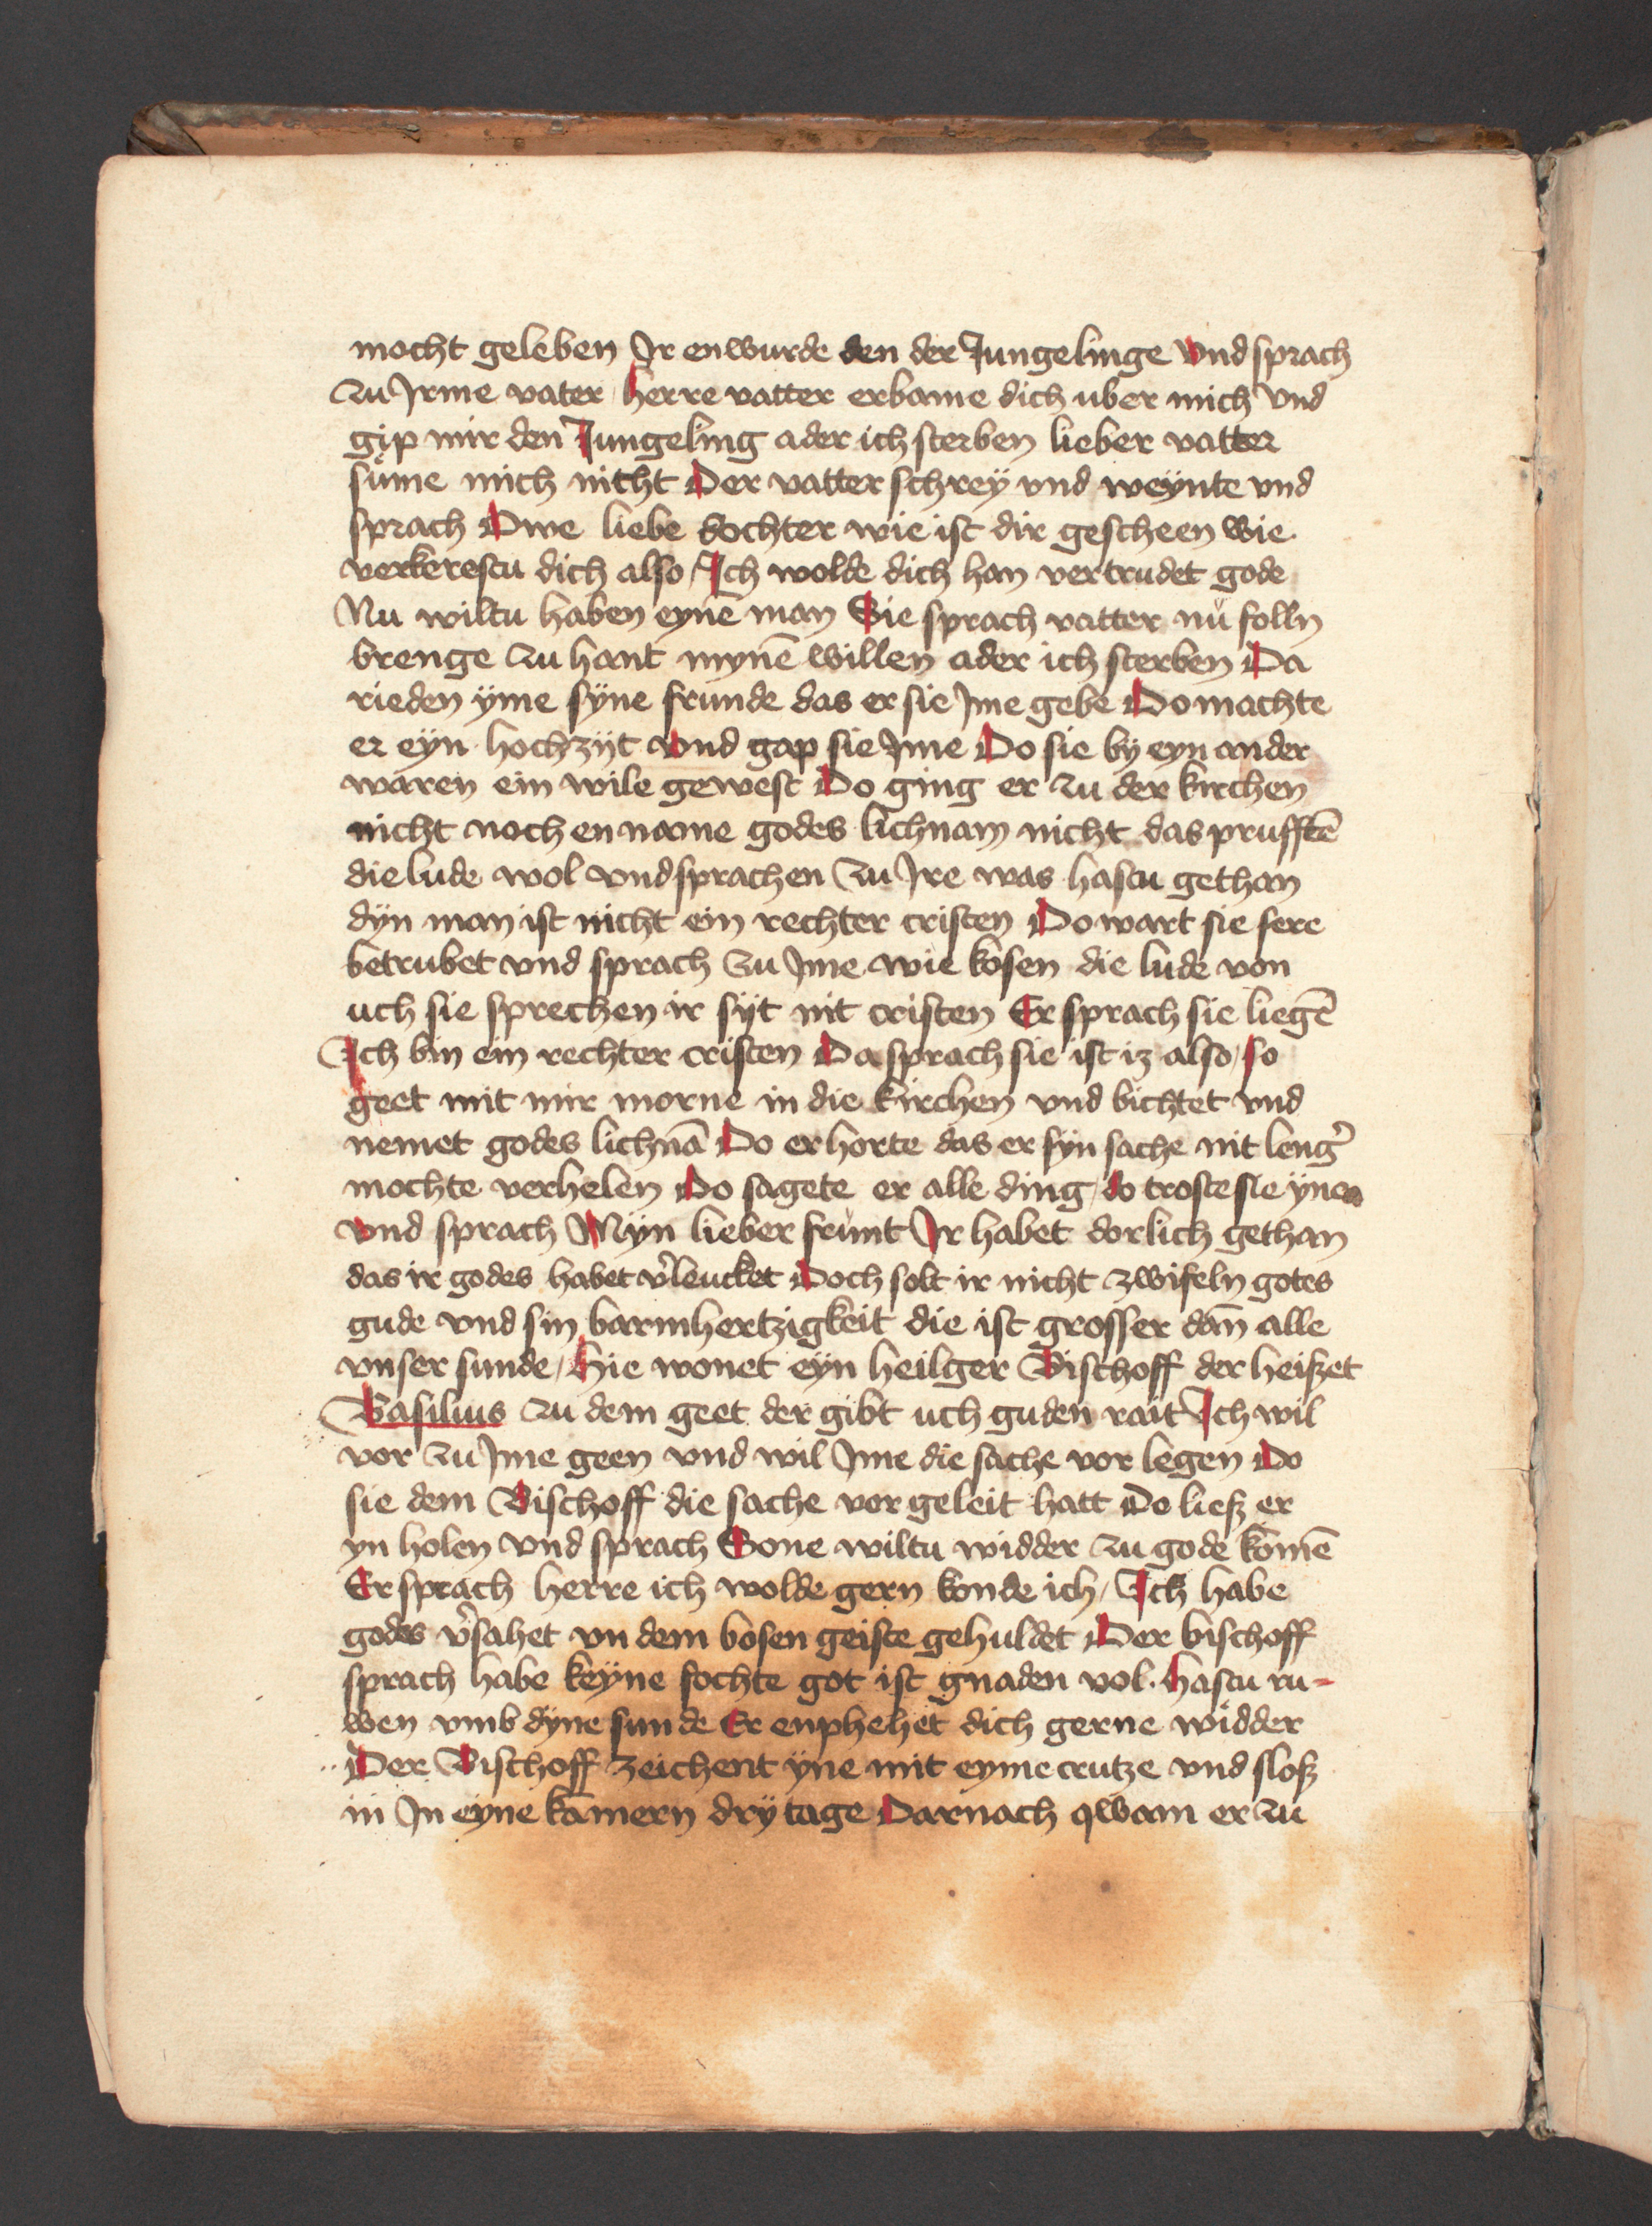 mocht geleben Ir enwurde den der Jungelinge Vnd sprach
zu Irme vater herre vatter erbame dich uber mich Vnd
gip mir den Jungeling ader ich sterben lieber vatter
sume mich nitht Der vatter schrey vnd weynte vnd
sprach Owe liebe dochter wie ist dir gescheen wie
verkerestu dich also / Ich wolde dich han vertrudet gode
Nu wiltu haben eynē man Sie sprach vatter nů folln
brenge zu hant mynē willen ader ich sterben Da
rieden ÿme sÿne frunde das er sie Ime gebe Do machte
er eÿn hochzÿt vnd gap sie Ime Do sie bÿ eyn ander
waren ein wile gewest Do ging er zu der kirchen
nicht noch en name godes lichnam nicht das prufftē
die lude wol vnd sprachen zu Ire was hastu gethan
dÿn man ist nicht ein rechter cristen Do wart sie sere
betrubet vnd sprach zu Ime wie kosen die lude von
uch sie sprechen ir sÿt nit cristen Er sprach sie liegē
Ich bin ein rechter cristen Da sprach sie ist iz also / so
geet mit mir morne in die kirchen vnd bichtet vnd
nemet godes lichnā Do er horte das er sÿn sache nit leng̉
mochte verhelen Do sagete er alle ding / do troste sie ÿnen
vnd sprach Mÿn lieber frůnt Ir habet dorlich gethan
das ir godes habet v̉leucket Doch solt ir nicht zwifeln gotes
gude vnd sin barmhertzigkeit die ist grosser dan̄ alle
vnser sunde / Hie wonet eÿn heilger Bischoff der heißet
Basilius zu dem geet der gibt uch guden rait Ich wil
vor zu Ime geen vnd wil Ime die sache vor legen Do
sie dem Bischoff die sache vor geleit hatt Do ließ er
yn holen vnd sprach Sone wiltu widder zu gode komē
Er sprach herre ich wolde gern konde ich / Ich habe
godes v̉sahet vn dem bosen geiste gehuldet Der bischoff
sprach habe keÿne fochte got ist gnaden vol. hastu ru-
wen vmb dÿne sunde Er enphehet dich gerne widder
Der Bischoff zeichent ÿne mit eyme crutze vnd sloß
in In eyne kamern drÿ tage Darnach qwam er zu